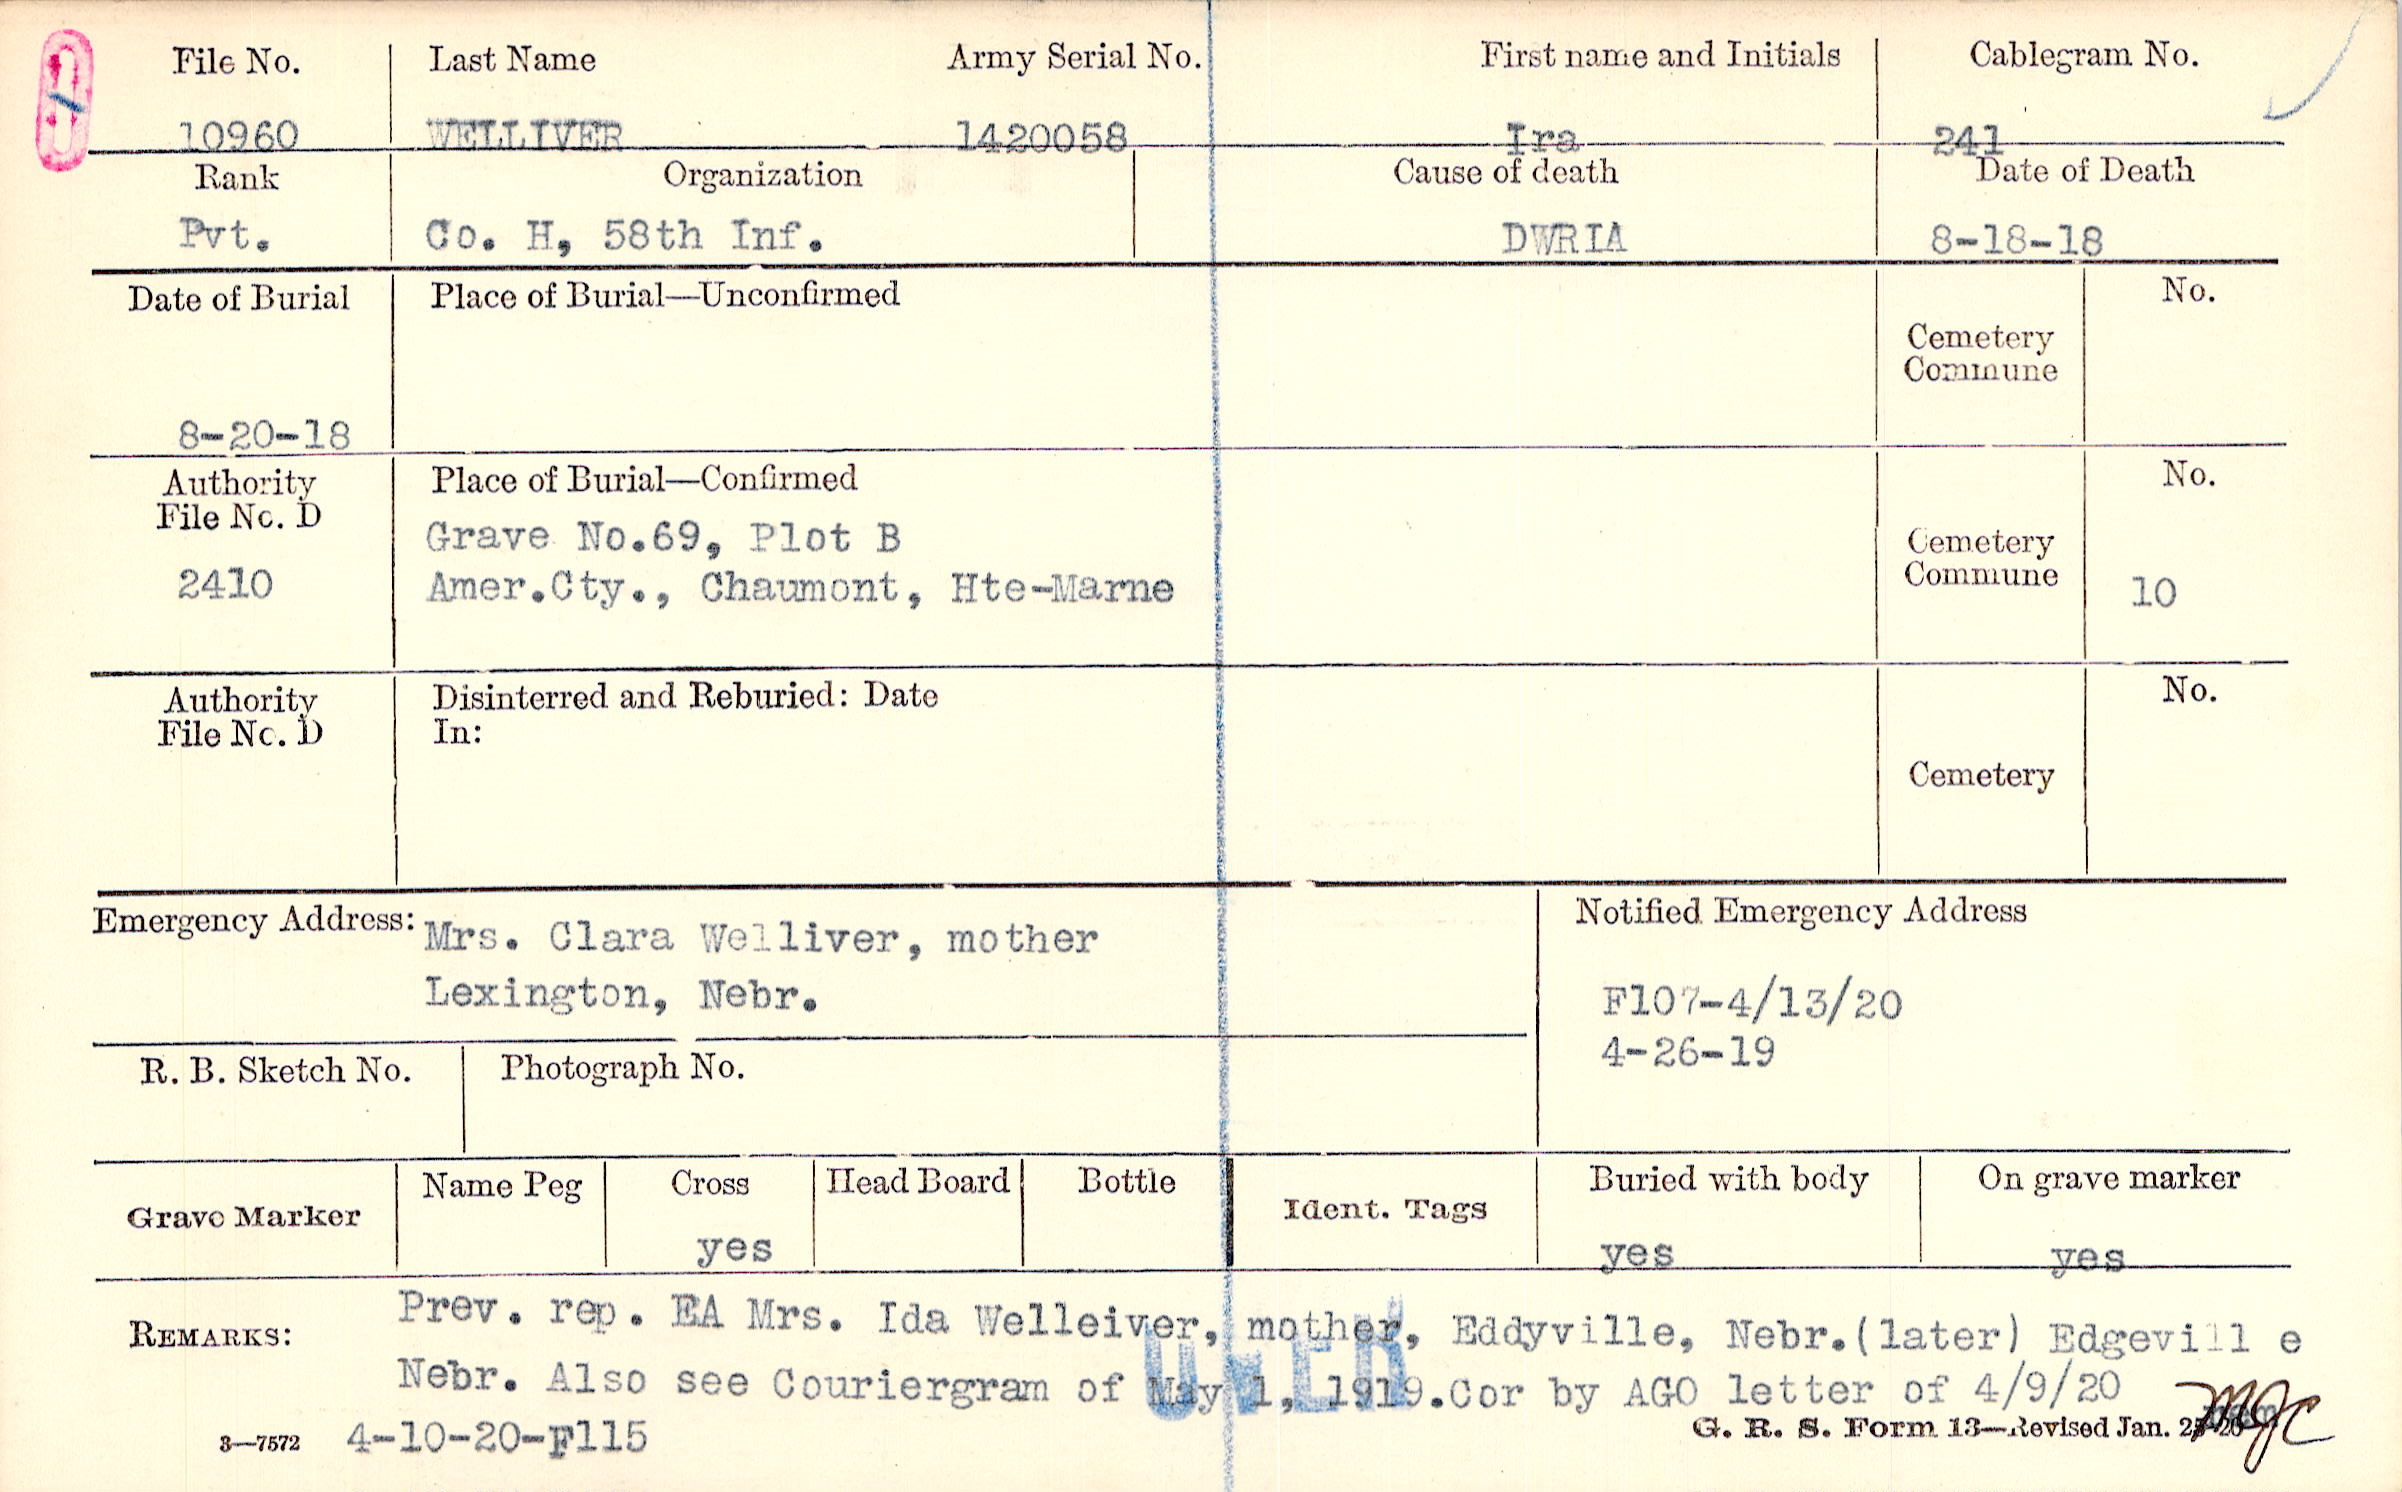 File No. Last Name Army Serial No. First name and Initials Cablegram No.
10960 WELLIVER 1420058 Ira 241
Rank Organization Cause of death Date of Death
Pvt. Co. H, 58th Inf. DWRIA 8-18-18
Date of Burial Place of Burial—Unconfirmed No.
Cemetery
Commune
8-20-18
Authority Place of Burial—Confirmed No.
File No. D
Grave No.69, Plot B Cemetery
2410 Amer.Cty., Chaumont, Hte-Marne Commune 10
Authority Disinterred and Reburied: Date No.
File No. D In:
Cemetery
Emergency Address: Mrs. Clara Welliver, mother Notified Emergency Address
Lexington, Nebr. F107-4/13/20
4-26-19
R. B. Sketch No. Photograph No.
Grave Marker Name Peg Cross Head Board Bottle Ident. Tags Buried with body On grave marker
yes yes yes
REMARKS: Prev. rep. EA Mrs. Ida Welleiver, mother, Eddyville, Nebr.(later) Edgevill e
Nebr. Also see Couriergram of May 1, 1919.Cor by AGO letter of 4/9/20
OVER
3—7572 4-10-20-F115 G. R. S. Form 13—Revised Jan. MJC